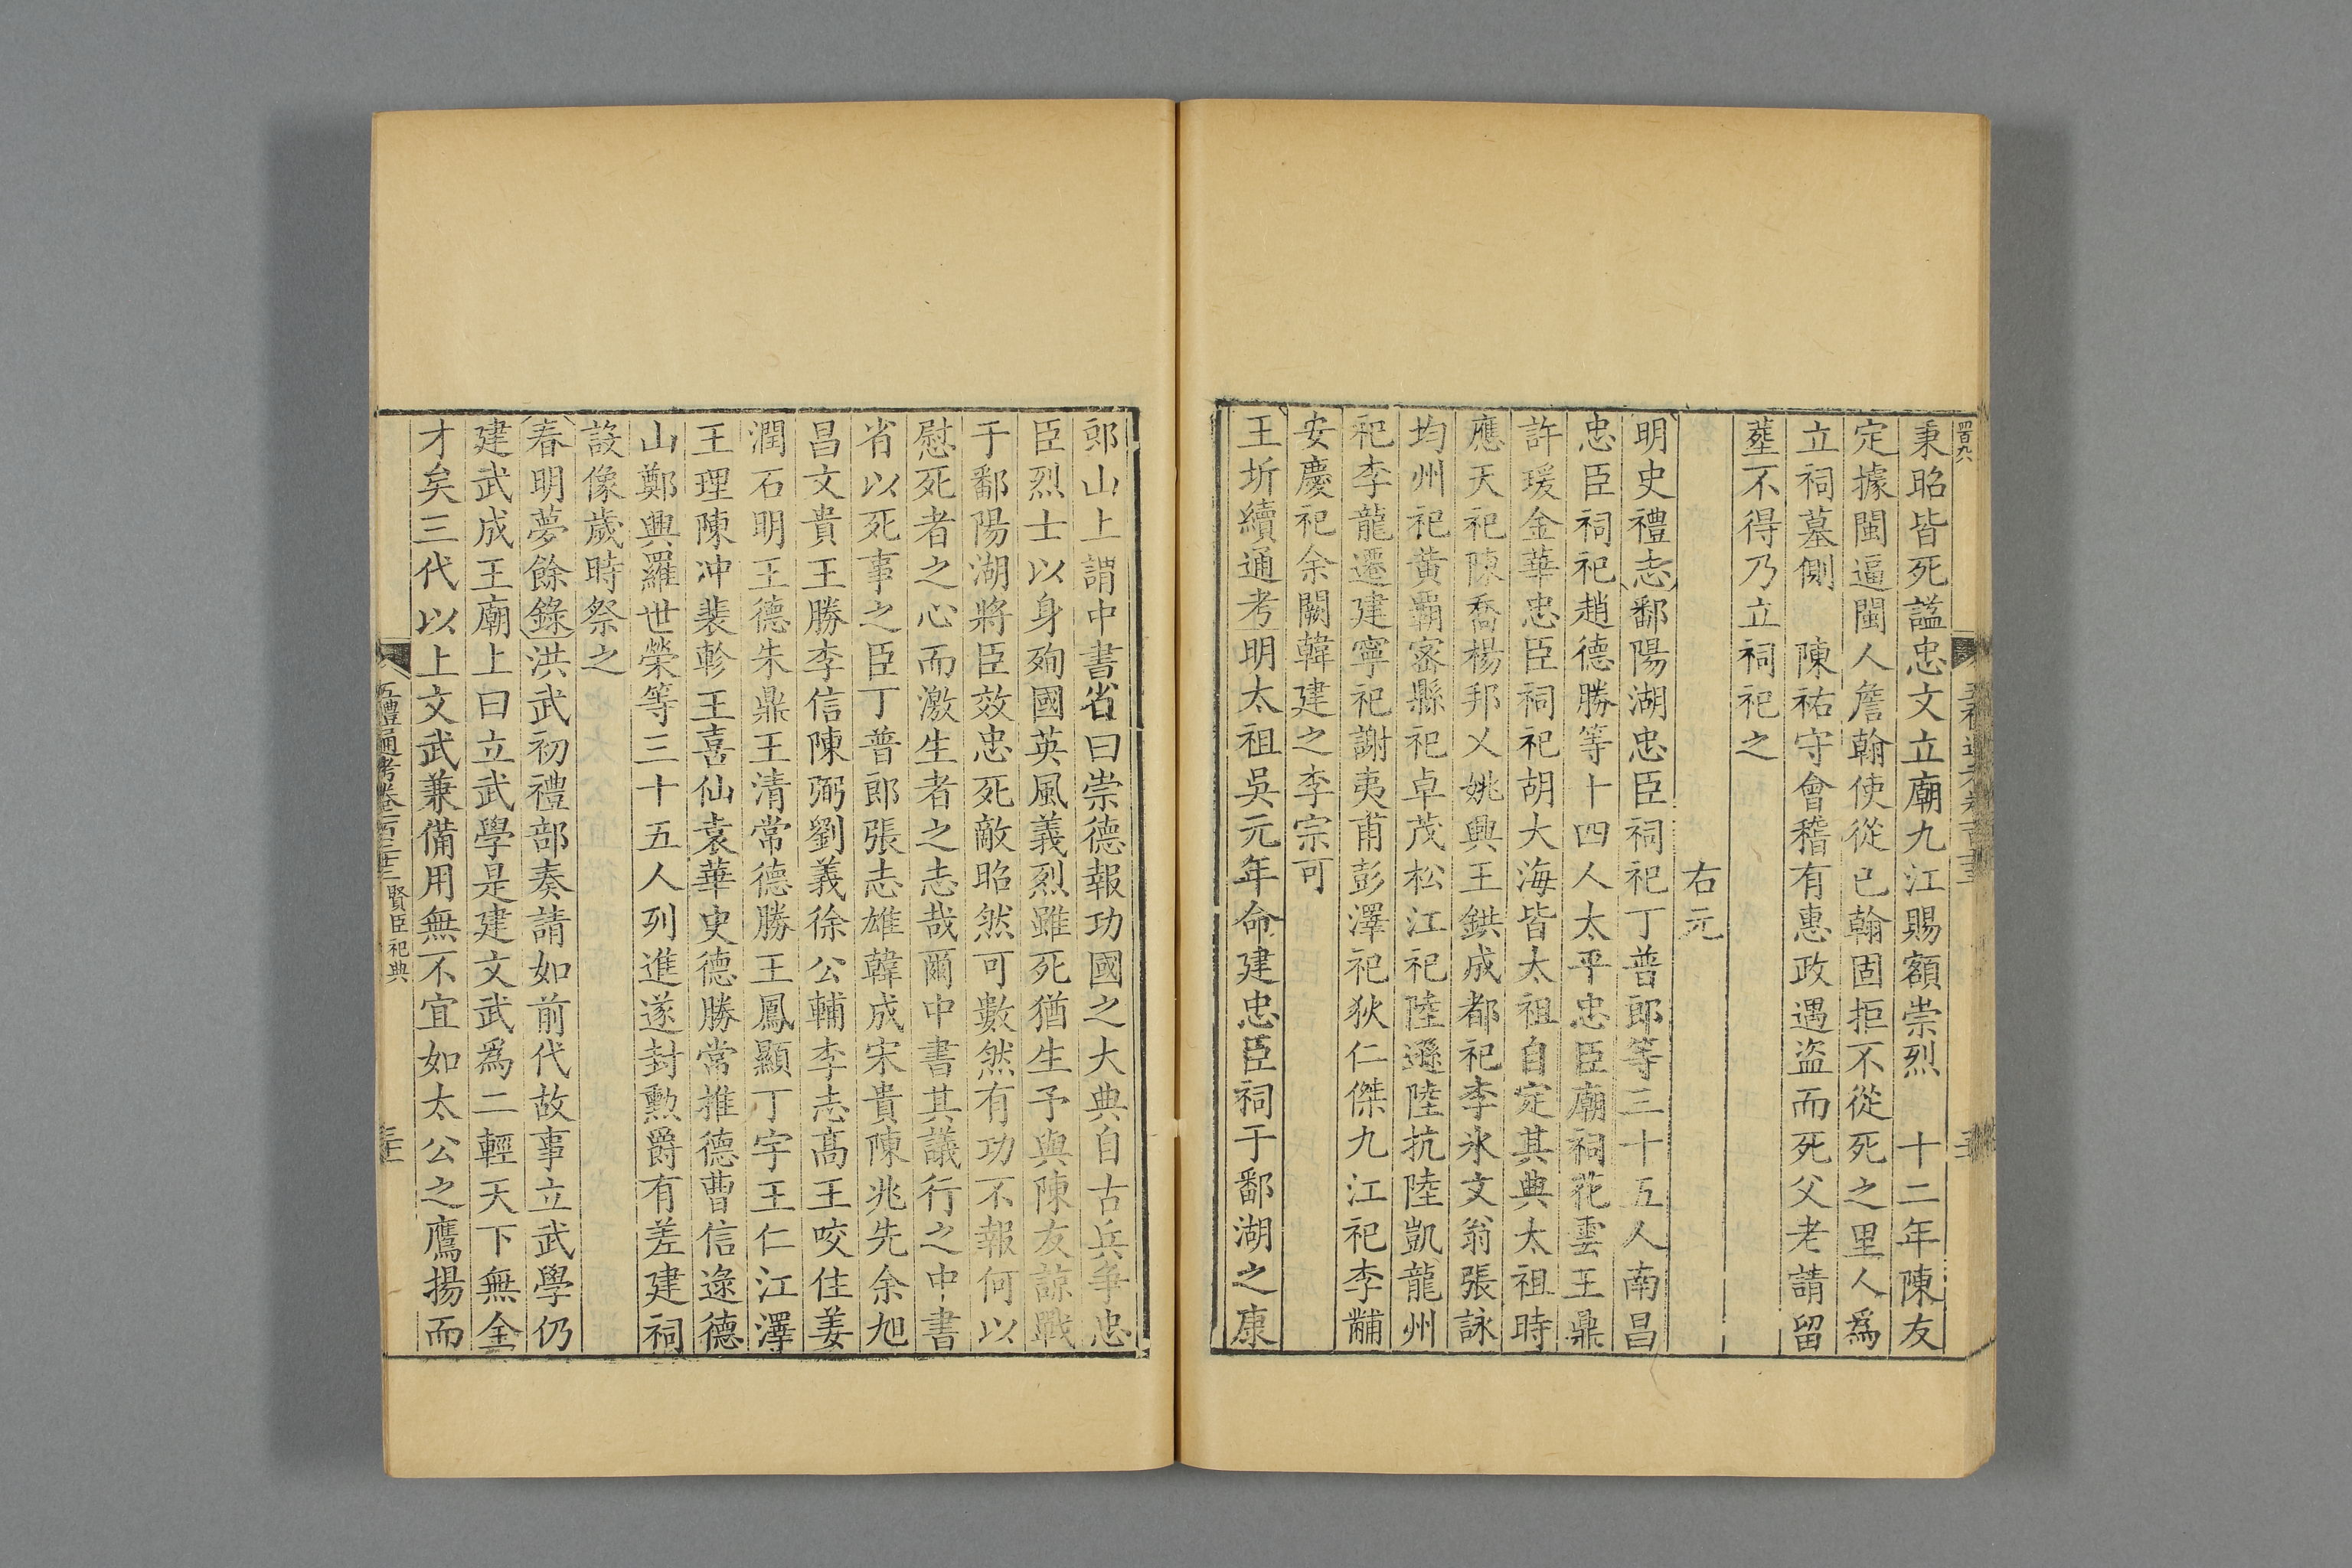 四百九六
秉昭皆死謚忠文立廟九江賜額崇烈　十二年陳友
定據閩逼閩人詹翰使從已翰固拒不從死之里人爲
立祠墓側　陳祐守會稽有惠政遇盗而死父老請留
塟不得乃立祠祀之
右元
明史禮志鄱陽湖忠臣祠祀丁普郎等三十五人南昌
忠臣祠祀趙德勝等十四人太平忠臣廟祠花雲王鼎
許瑗金華忠臣祠祀胡大海皆太祖自定其典太祖時
應天祀陳喬楊邦乂姚興王鉷成都祀李氷文翁張詠
均州祀黄霸密縣祀卓茂松江祀陸遜陸抗陸凱龍州
祀李龍遷建寧祀謝夷甫彭澤祀狄仁傑九江祀李黼
安慶祀余闕韓建之李宗可
王圻續通考明太祖吳元年命建忠臣祠于鄱湖之康
郎山上謂中書省曰崇德報功國之大典自古兵爭忠
臣烈士以身殉國英風義烈雖死猶生予與陳友諒戰
于鄱陽湖將臣效忠死敵昭然可數然有功不報何以
慰死者之心而激生者之志哉爾中書其議行之中書
省以死事之臣丁普郎張志雄韓成宋貴陳兆先余旭
昌文貴王勝李信陳弼劉義徐公輔李志高王咬住姜
潤石明王德朱鼎王清常德勝王鳳顯丁宇王仁江澤
王理陳冲裴軫王喜仙袁華史德勝常推德曹信逯德
山鄭興羅世榮等三十五人列進遂封勲爵有差建祠
設像歲時祭之
春明夢餘錄洪武初禮部奏請如前代故事立武學仍
建武成王廟上曰立武學是建文武爲二輕天下無全
才矣三代以上文武兼備用無不宜如太公之鷹揚而
五禮通考卷一百二十三　賢臣祀典